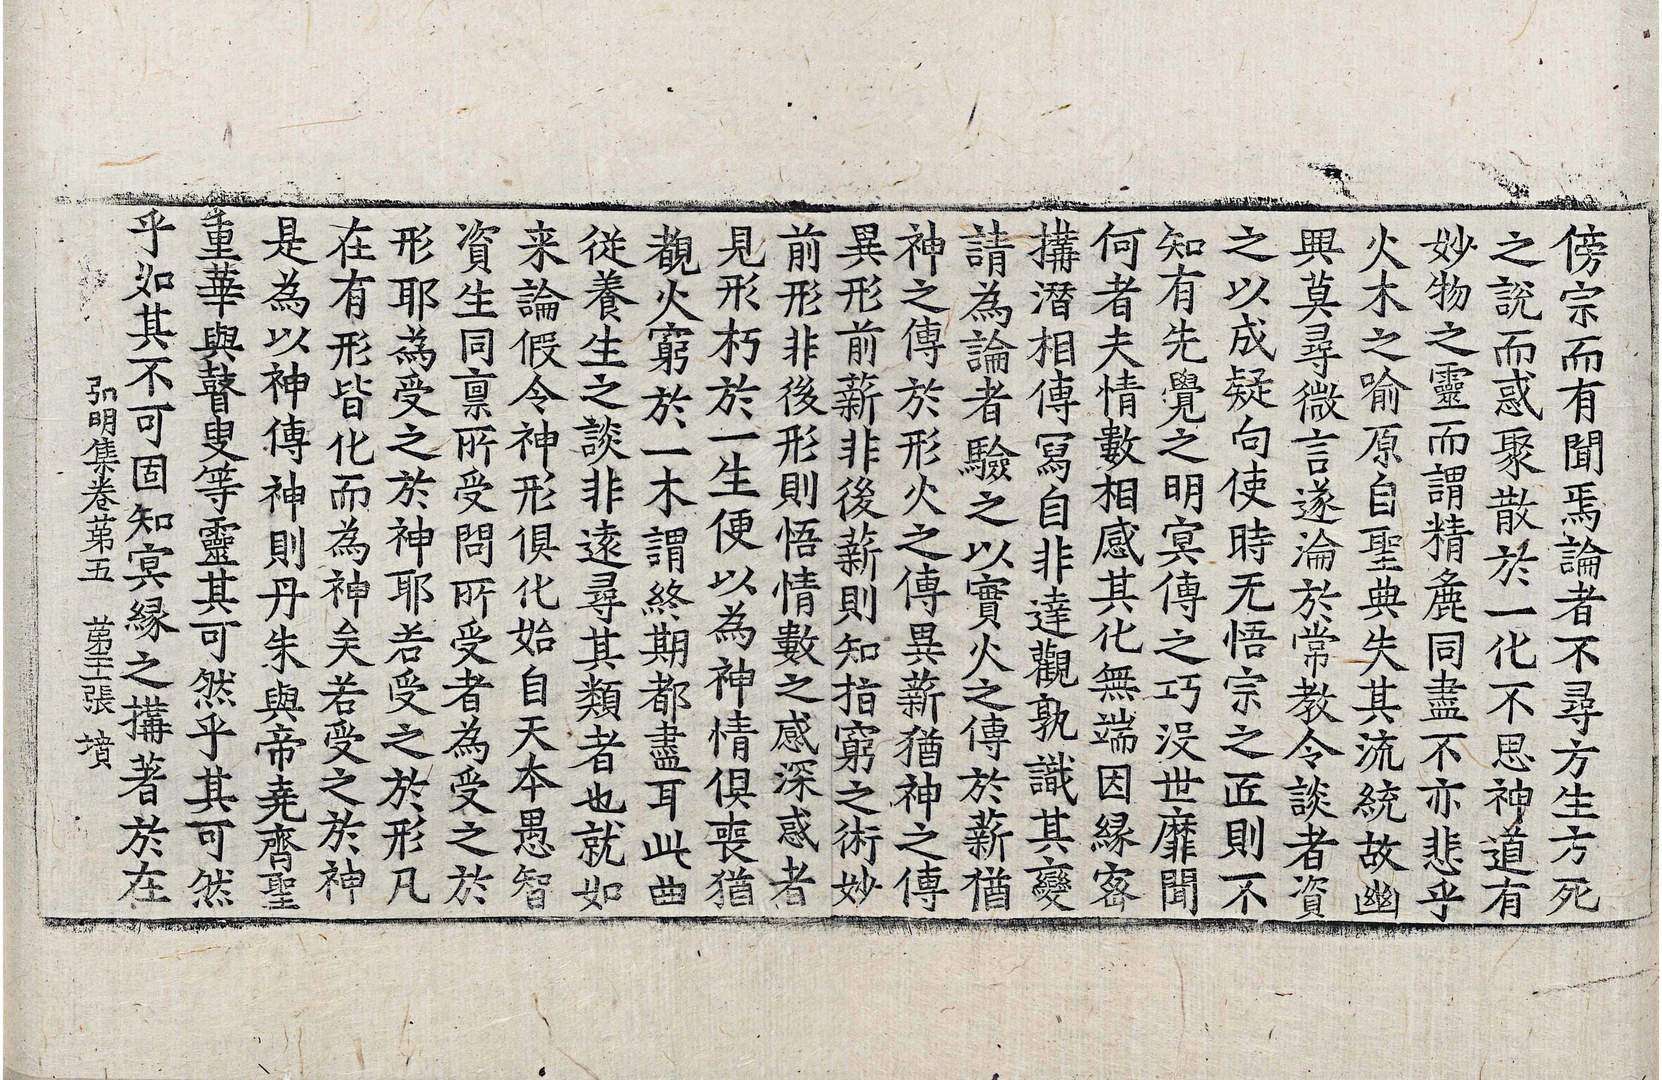 傍宗而有聞焉論者不尋方生方死
之說而惑聚散於一化不思神道有
妙物之靈而謂精麁同盡不亦悲乎
火木之喻原自聖典失其流統故幽
興莫尋微言遂淪於常教令談者資
之以成疑向使時无悟宗之匠則不
知有先覺之明冥傳之巧没世靡聞
何者夫情數相感其化無端因緣密
搆潛相傳寫自非達觀孰識其變
請為論者驗之以實火之傳於薪猶
神之傳於形火之傳異薪猶神之傳
異形前薪非後薪則知指窮之術妙
前形非後形則悟情數之感深惑者
見形朽於一生便以為神情俱喪猶
覩火窮於一木謂終期都盡耳此曲
從養生之談非遠尋其類者也就如
来論假令神形俱化始自天本愚智
資生同禀所受問所受者為受之於
形耶為受之於神耶若受之於形凡
在有形皆化而為神矣若受之於神
是為以神傳神則丹朱與帝堯齊聖
重華與瞽叟等靈其可然乎其可然
乎如其不可固知冥緣之搆著於在
弘明集卷苐五　苐十二張　墳